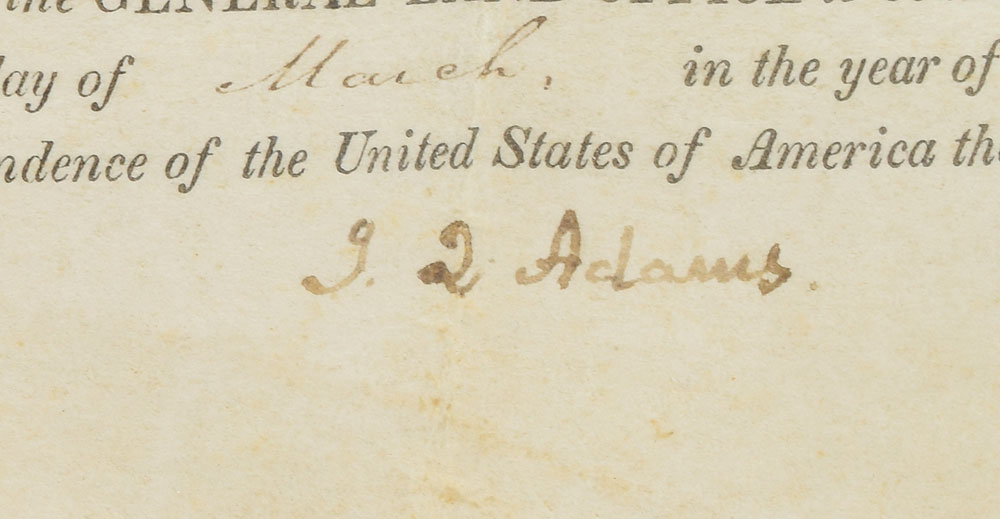 the GENERAL LAND OFFICE to
day of March, in the year of
ndence of the United States of America the
J. Q. Adams.